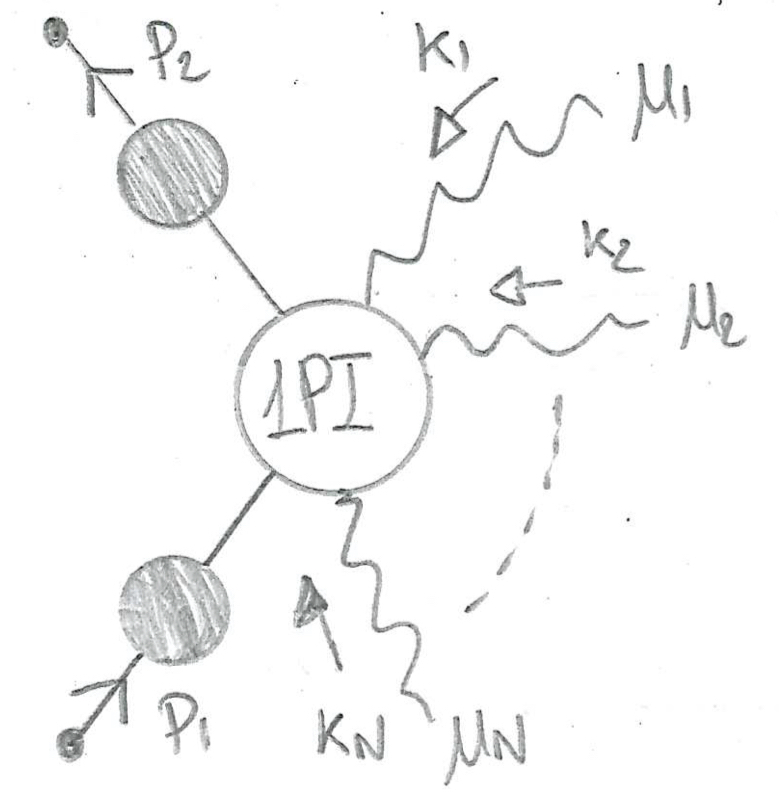 P2
K1
μ1
K2
μ2
1PI
P1
KN
μN